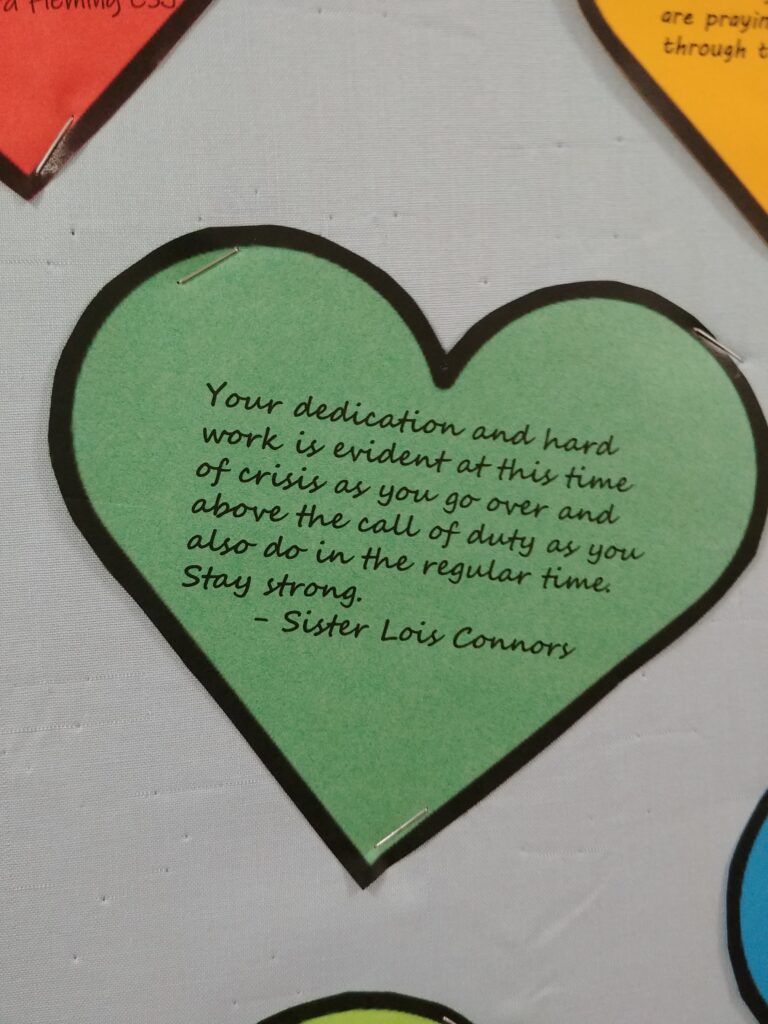 Fleming CSJ
are
through
Your dedication and hard
work is evident at this time
of crisis as you go over and
above the call of duty as you
also do in the regular time.
Stay strong.
- Sister Lois Connors